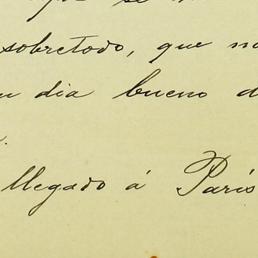 sobretodo, que no
dia bueno d
llegado á París